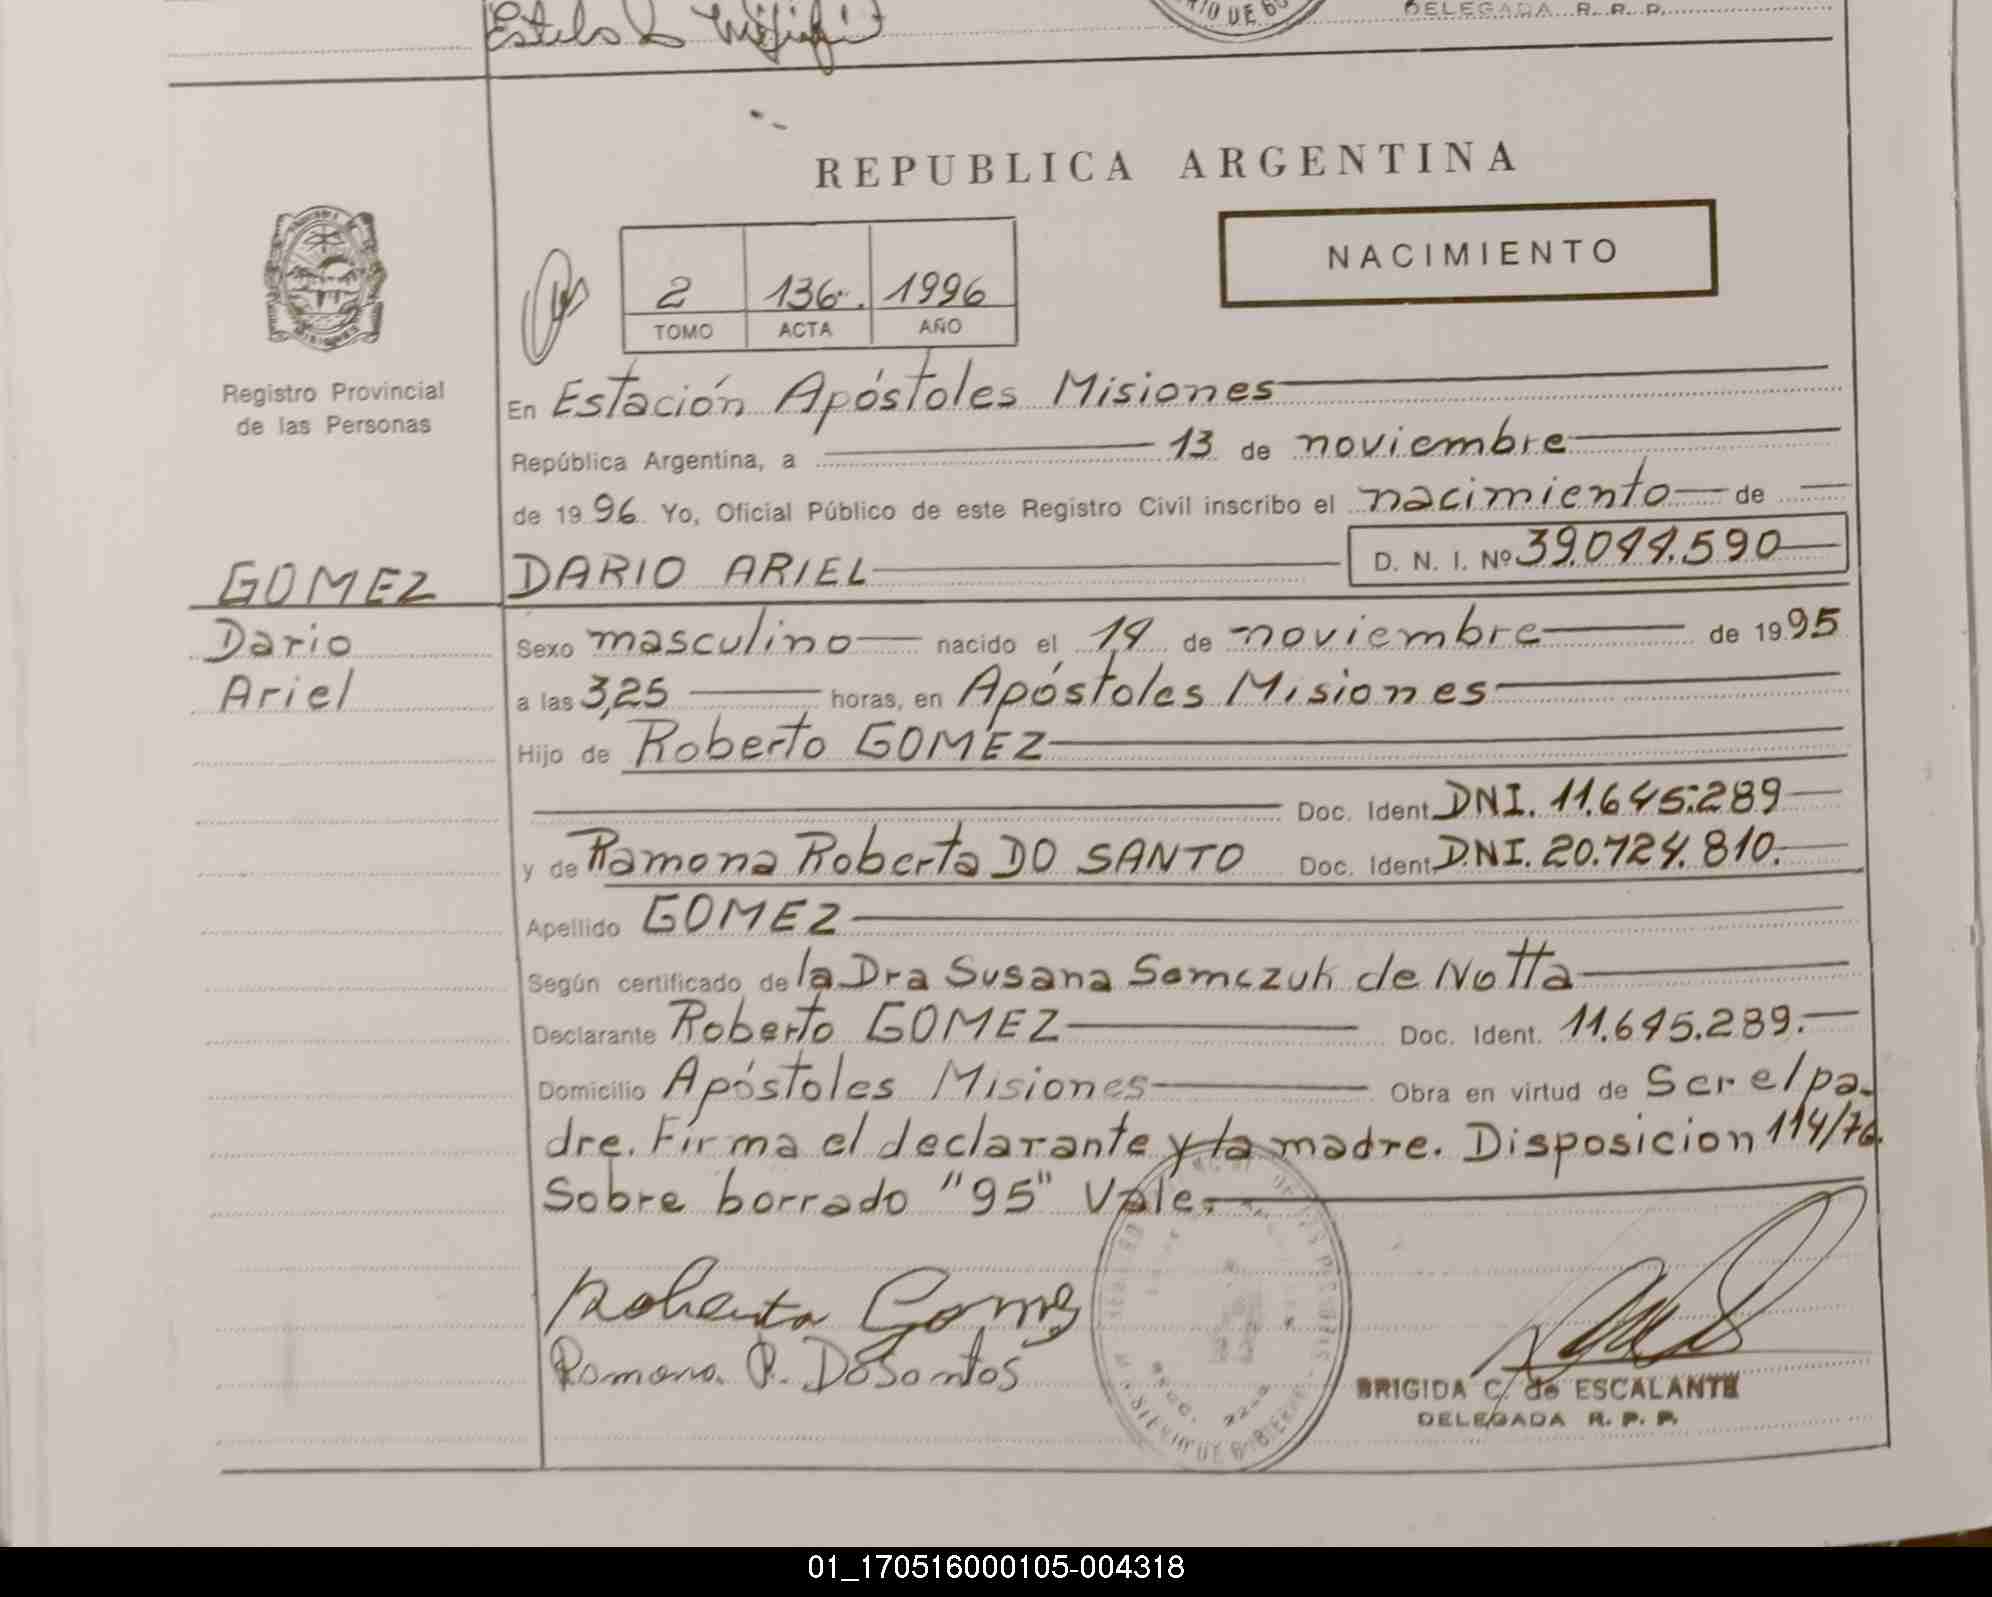 DELEGADA R. P. P.
REPUBLICA ARGENTINA
NACIMIENTO
2 136 1996
TOMO ACTA AÑO
Registro Provincial
de las Personas
En Estación Apóstoles Misiones
República Argentina, a 13 de noviembre
de 1996 Yo, Oficial Público de este Registro Civil inscribo el nacimiento de
GOMEZ DARIO ARIEL D. N. I. Nº 39.044.590
Dario
Ariel
Sexo masculino nacido el 14 de noviembre de 1995
a las 3,25 horas, en Apóstoles Misiones
Hijo de Roberto GOMEZ
Doc. Ident. DNI. 11.645.289
y de Ramona Roberta DO SANTO Doc. Ident. D.NI. 20.724.810.
Apellido GOMEZ
Según certificado de la Dra Susana Semczuk de Notta
Declarante Roberto GOMEZ Doc. Ident. 11.645.289.
Domicilio Apóstoles Misiones Obra en virtud de Ser el pa-
dre. Firma el declarante y la madre. Disposicion 114/76.
Sobre borrado "95" Vale.
Roberto Gomez
Ramona R. DoSantos
BRIGIDA C. de ESCALANTE
DELEGADA R. P. P.
01_170516000105-004318